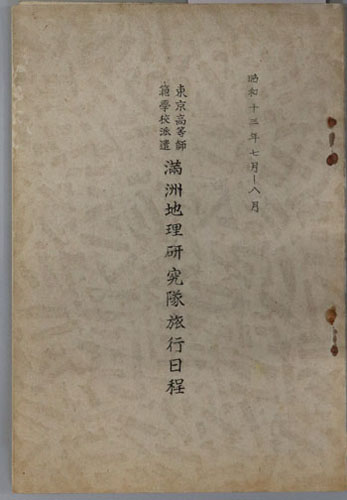 昭和十三年七月－八月
東京高等師範學校派遣
滿洲地理研究隊旅行日程